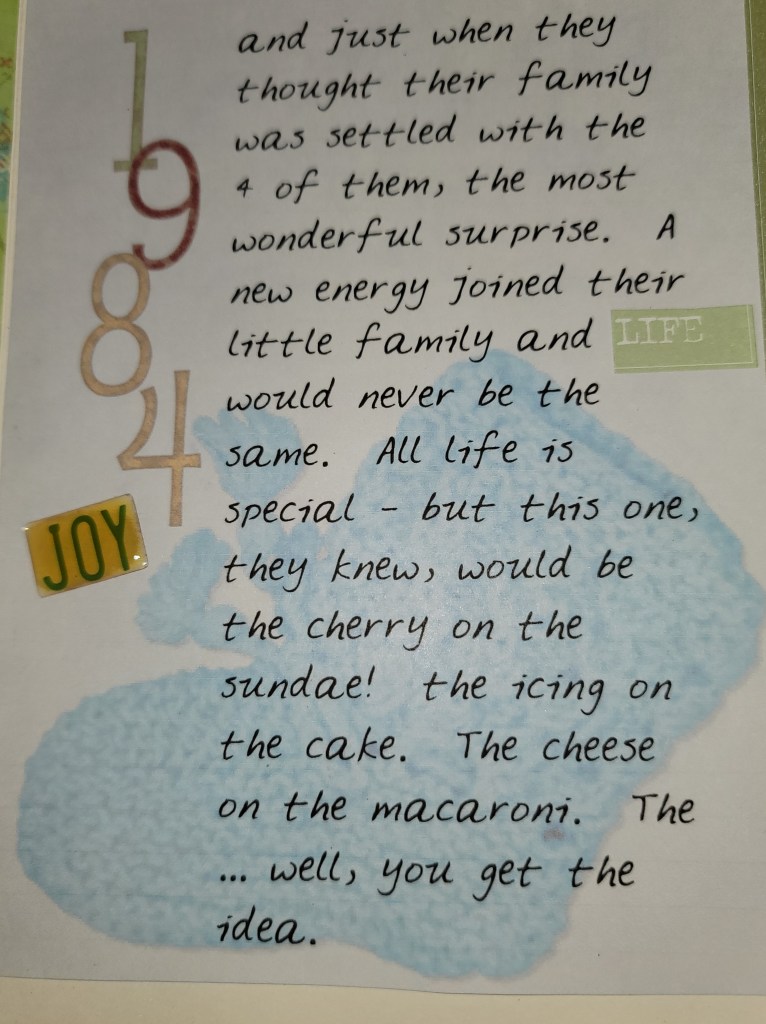 1984
and just when they
thought their family
was settled with the
4 of them, the most
wonderful surprise. A
new energy joined their
little family and
LIFE
would never be the
same. All life is
special - but this one,
they knew, would be
JOY
the cherry on the
sundae! the icing on
the cake. The cheese
on the macaroni. The
... well, you get the
idea.